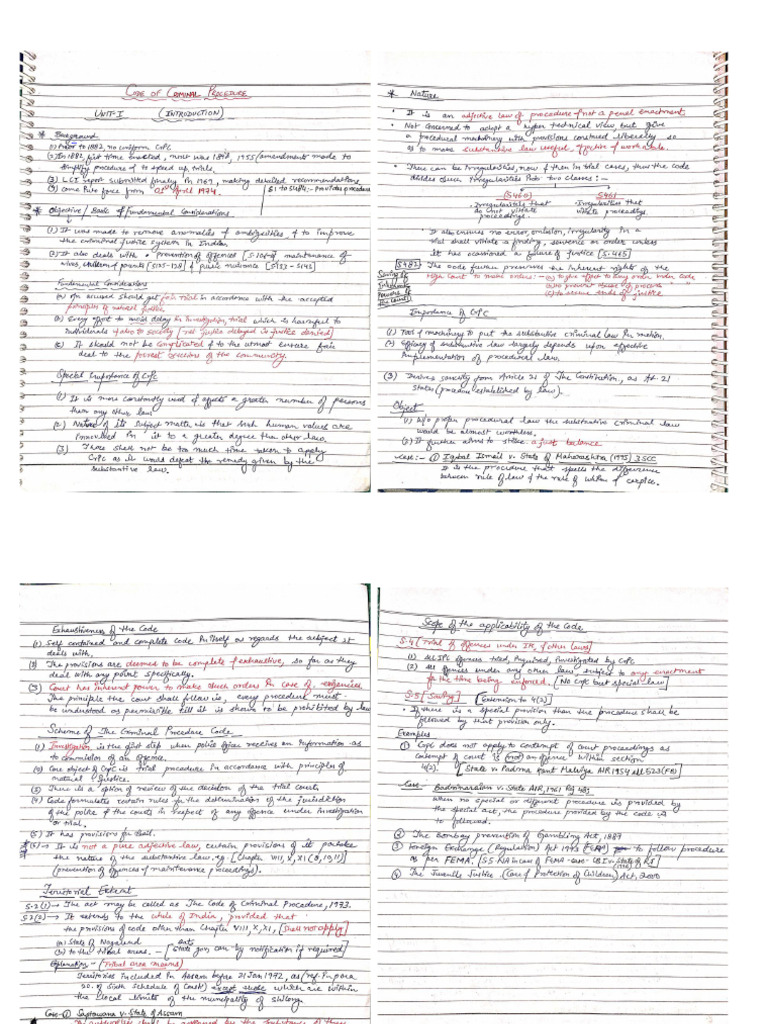 CODE OF CRIMINAL PROCEDURE
UNIT-I (INTRODUCTION)
* Background
(1) Prior to 1882, no uniform CrPC
(2) In 1882, first time enacted, next was 1898, 1955 (amendment made to
procedure & to speed up trials.
(3) LCI report submitted finally in 1969, making detailed recommendations
(4) came into force from 1st April 1974. S.1 to S.484:- Provides procedure
* Objective / Basic & Fundamental Considerations
(1) It was made to remove anomalies & ambiguities, & to improve
the criminal justice system in India.
(2) It also deals with • prevention of offences & maintenance of
wives, children & parents [S125-128] & public nuisance [S133-S143]
Fundamental Considerations
(a) An accused should get fair trial in accordance with the accepted
principles of natural justice
(b) Every effort to avoid delay in investigation, trial which is harmful to
individuals & also to society [justice delayed is justice denied]
(c) It should not be complicated & to the utmost ensure fair
deal to the poorest sections of the community.
Special Importance of CrPC
(1) It is more constantly used & affects a greater number of persons
than any other law
(2) Nature of its subject matter is that such human values are
involved in it to a greater degree than other law.
(3) There shall not be too much time taken to apply
CrPC as it would defeat the remedy given by the
substantive law.
* Nature
• It is an adjective law of procedure & not a penal enactment.
• Not concerned to adopt a hyper technical view, but give
a procedural machinery with provisions construed liberally so
as to make substantive law useful, effective & workable.
• There can be irregularities, now & then in trial cases, thus the code
divides such irregularities into two classes:-
S460 S461
Irregularities that do not vitiate proceedings. Irregularities that vitiate proceedings.
It also ensures no error, omission, irregularity in a
trial shall vitiate a finding, sentence or order unless
it has occasioned a failure of justice [S.465]
S482 The code further preserves the inherent rights of the
High Court to make orders:- (a) to give effect to any order under code
(b) to prevent abuse of process
(c) to secure ends of justice
Saving of Inherent Powers of the Courts
Importance of CrPC
(1) Tool of machinery to put the substantive criminal law in motion.
(2) Efficacy of substantive law largely depends upon effective
implementation of procedural law.
(3) Derives sanctity from Article 21 of The Constitution, as Art. 21
states (procedure established by law).
Object
(1) W/o proper procedural law the substantive criminal law
would be almost worthless.
(2) It further aims to strike a just balance
Case:- (1) Iqbal Ismail v. State of Maharashtra (1975) 3 SCC
It is the procedure that spells the difference
between rule of law & the rule of whim & caprice.
Exhaustiveness of the Code
(1) Self contained and complete code in itself as regards the subject it
deals with,
(2) The provisions are deemed to be complete & exhaustive, so far as they
deal with any point specifically.
(3) Court has inherent power to make such orders in case of exigencies.
The principle the court shall follow is, every procedure must
be understood as permissible till it is shown to be prohibited by law
Scheme of The Criminal Procedure Code
(1) Investigation is the first step when police officer receives an information as
to commission of an offence.
(2) One object of CrPC is trial procedure in accordance with principles of
natural justice.
(3) There is a option of review of the decision of the trial courts
(4) Code formulates certain rules for the determination of the jurisdiction
of the police & the courts in respect of any offence under investigation
or trial.
(5) It has provisions for bail.
(6) → It is not a pure adjective law, certain provisions of it partake
the nature of the substantive law. eg- [Chapter VIII, X, XI (8,10,11)
(prevention of offences & maintenance proceedings).
Territorial Extent
S.2(1) → The act may be called as The Code of Criminal Procedure, 1973.
S2(2) → It extends to the whole of India, provided that
the provisions of code other than Chapter VIII, X, XI, [shall not apply]
(a) State of Nagaland
(b) to the tribal areas. - [State gov. can by notification if required]
Explanation- (Tribal area means)
Territories included in Assam before 21 Jan 1972, as (ref. in para
20. of Sixth Schedule of Const) except those which are within
the local limits of the municipality of shillong
Case-(1) Saptawana v. State of Assam
Scope of the applicability of the Code
S.4 [Trial of offences under IPC & other laws]
(1) All IPC offences tried, inquired, investigated by CrPC
(2) All offences under any other law, subject to any enactment
for the time being enforced [No CrPC but special law]
S.5 [Saving] [Extension to 4(2)]
• If there is a special provision then the procedure shall be
followed by that provision only.
Examples
(1) CrPC does not apply to contempt of court proceedings as
contempt of court is not an offence within section
4(2). [State v. Padma Kant Malviya AIR 1954 All 523 (FB)
Case- Badrinarain v. State AIR, 1961
when no special or different procedure is provided by
the special act, the procedure provided by the code is
to followed.
(2) The Bombay prevention of Gambling Act, 1887
(3) Foreign Exchange (Regulation) Act 1973 (FERA) to follow procedure
as per FEMA.
(4) The Juvenile Justice (Care & Protection of Children) Act, 2000